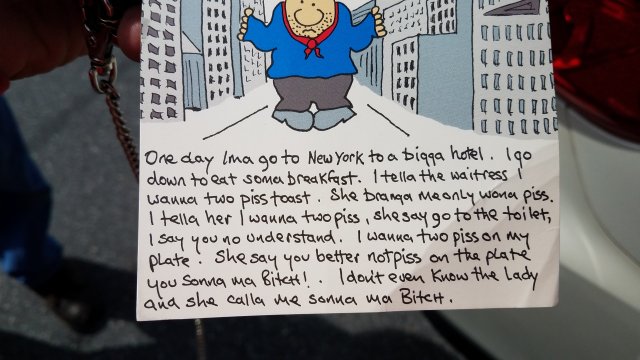 One day Ima go to New York to a bigga hotel. I go
down to eat soma breakfast. I tella the waitress I
wanna two piss toast. She branga me only wona piss.
I tella her I wanna two piss, she say go to the toilet,
I say you no understand. I wanna two piss on my
plate. She say you better not piss on the plate
you Sonna ma Bitch!. I don't even Know the Lady
and she calla me sonna ma Bitch.